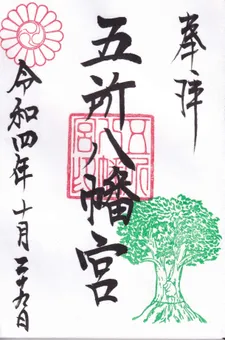 奉拝
五所八幡宮
令和四年十月二十九日